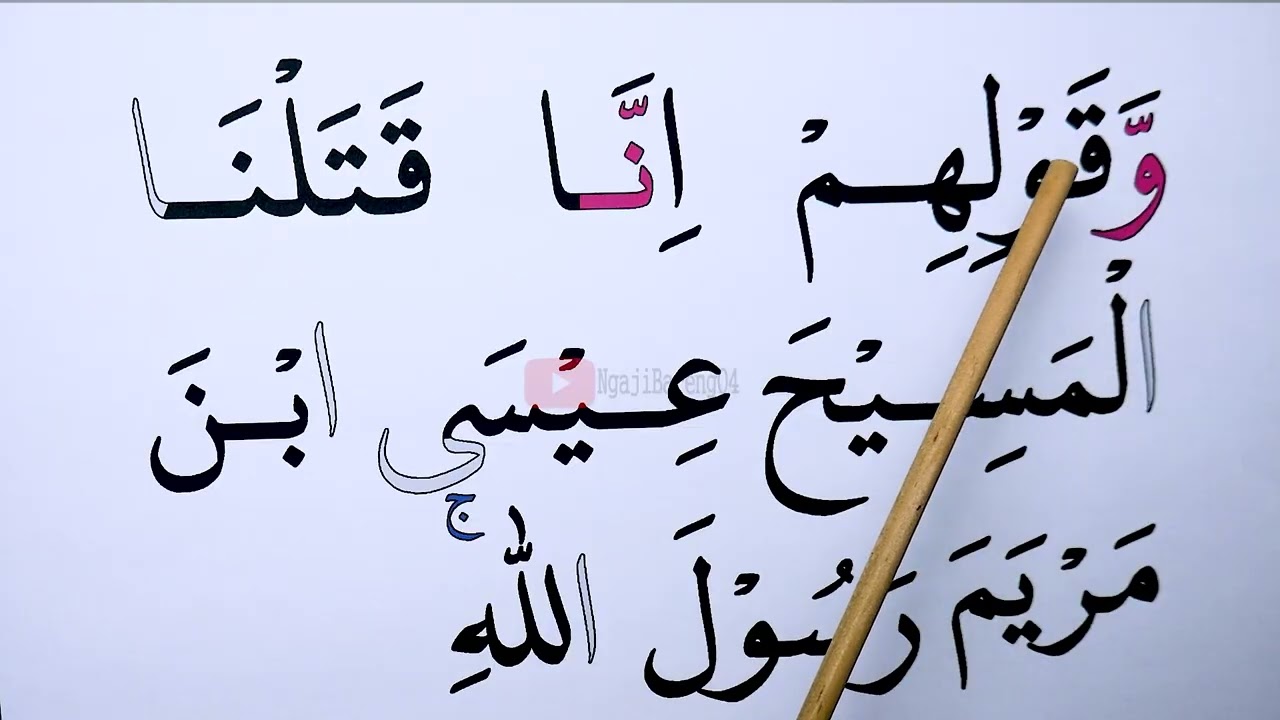 وَّقَوْلِهِمْ اِنَّا قَتَلْنَا
الْمَسِيْحَ عِيْسَى ابْنَ
مَرْيَمَ رَسُوْلَ اللّٰهِۚ
NgajiBareng04